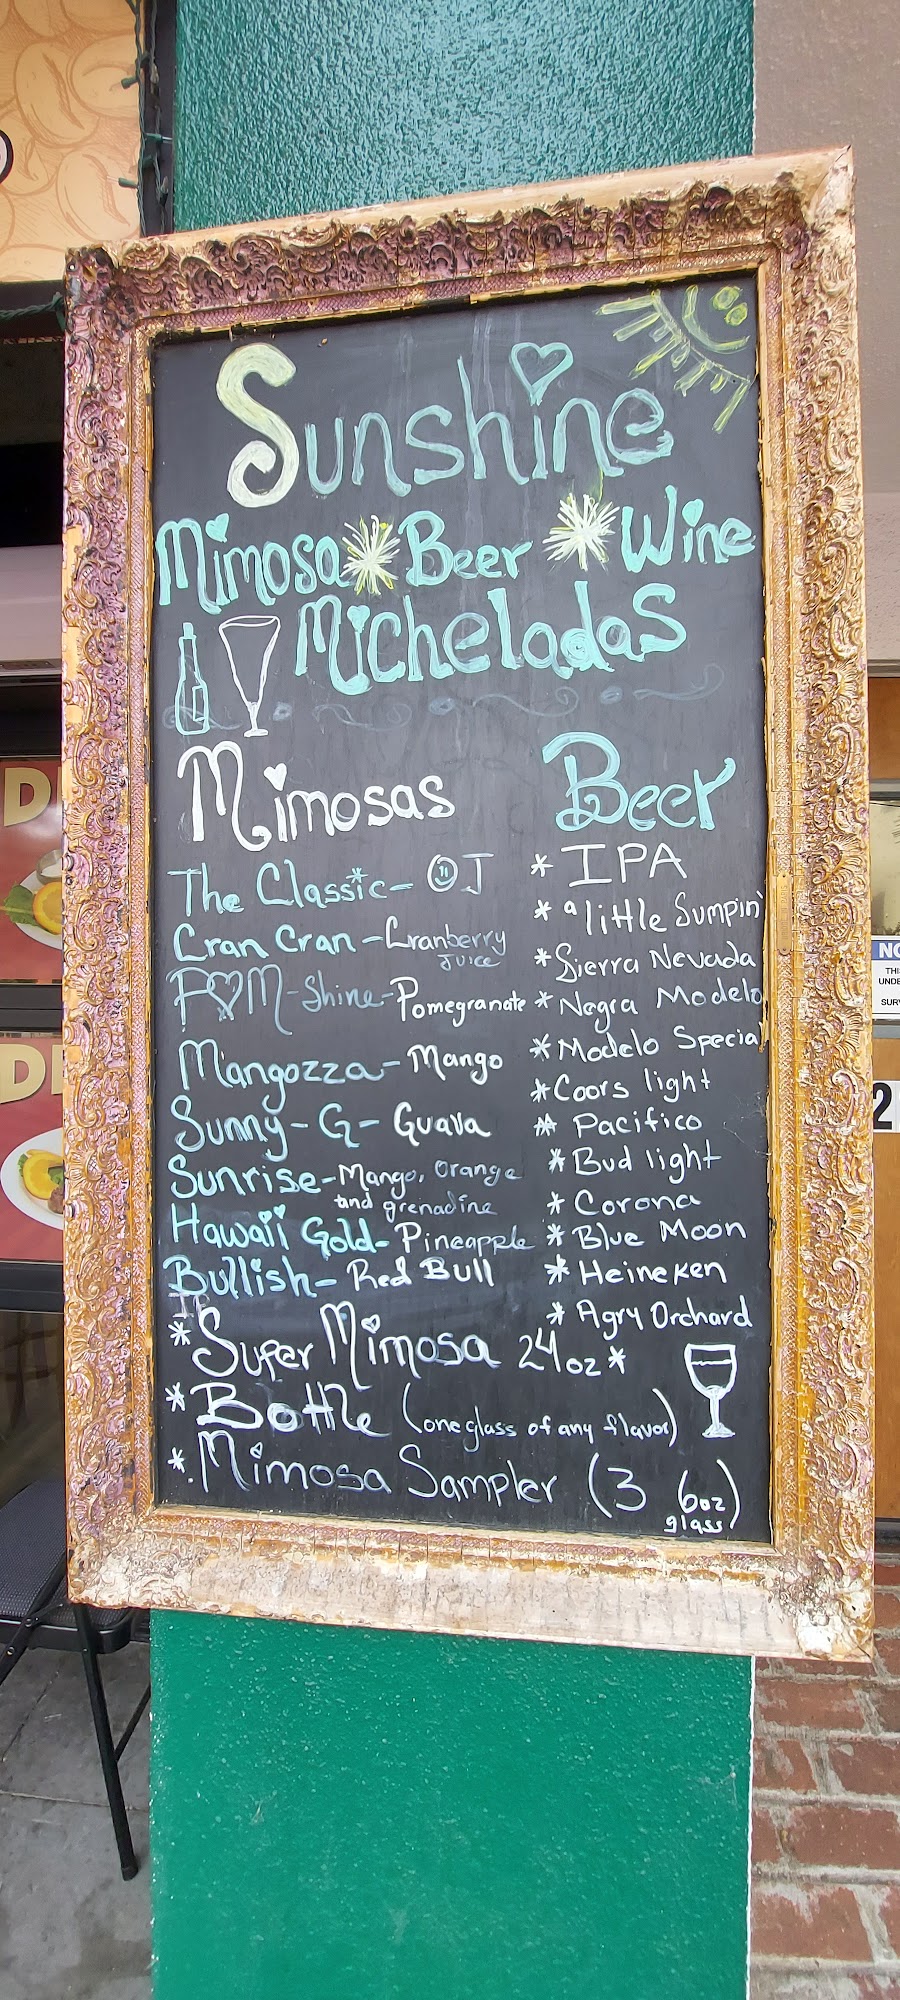 Sunshine
Mimosa Beer Wine
Micheladas
Mimosas
The Classic - OJ
Cran Cran - Cranberry
Juice
POM-Shine - Pomegranate
Mangozza - Mango
Sunny-G- Guava
Sunrise - Mango, orange
and grenadine
Hawaii Gold - Pineapple
Bullish - Red Bull
Beer
* IPA
* a little Sumpin'
* Sierra Nevada
* Negra Modelo
* Modelo Special
* Coors light
* Pacifico
* Bud light
* Corona
* Blue Moon
* Heineken
* Agry Orchard
* Super Mimosa 24oz *
* Bottle (one glass of any flavor)
* Mimosa Sampler (3 6oz)
glass
NO
THI
UNDE
SURV
2
D
D